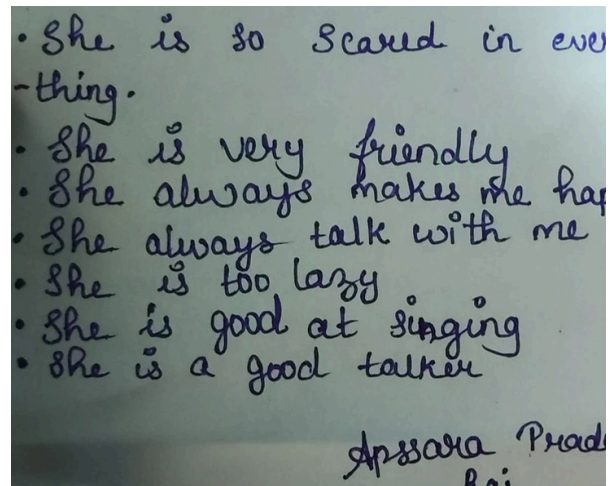 • She is so scared in ever
-thing.
• She is very friendly
• She always makes me hap
• She always talk with me
• She is too lazy
• She is good at singing
• She is a good talker
Apssara Prad